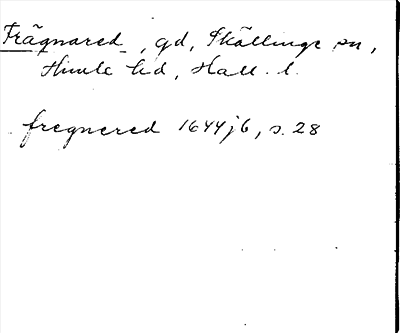 Frägnared, gd, Skällinge sn,
Himle hd, Hall. l.
fregnered 1644 jb, s. 28